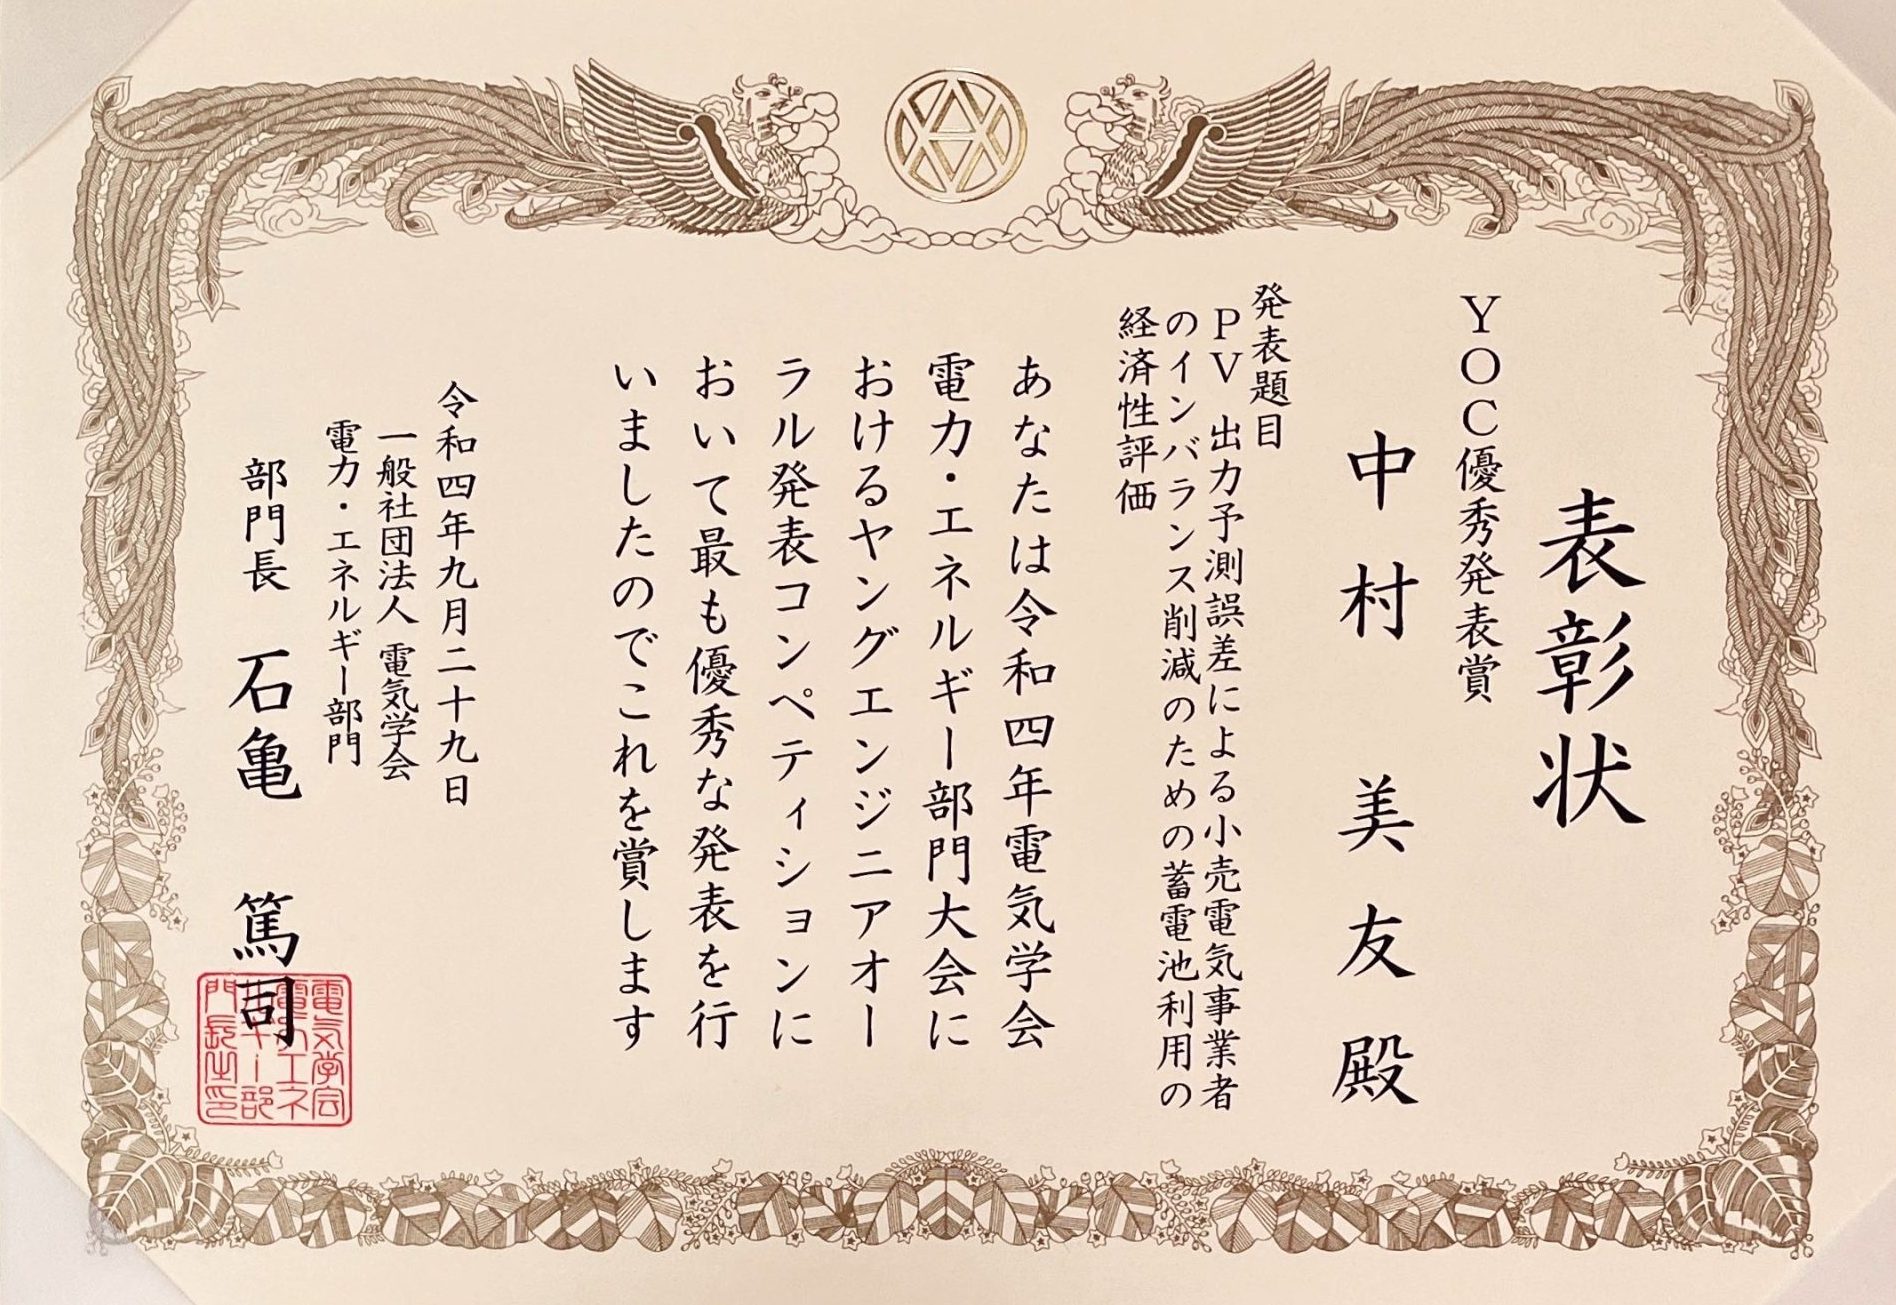 表彰状
YOC優秀発表賞
中村 美友 殿
発表題目
PV 出力予測誤差による小売電気事業者
のインバランス削減のための蓄電池利用の
経済性評価
あなたは令和四年電気学会
電力・エネルギー部門大会に
おけるヤングエンジニアオー
ラル発表コンペティションに
おいて最も優秀な発表を行
いましたのでこれを賞します
令和四年九月二十九日
一般社団法人 電気学会
電力・エネルギー部門
部門長 石亀 篤司
電気学会
電力エネ
ルギー部
門長之印